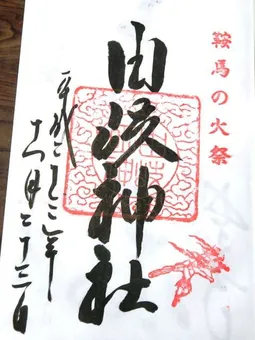 鞍馬の火祭
由岐神社
平成二十二年
十一月二十三日